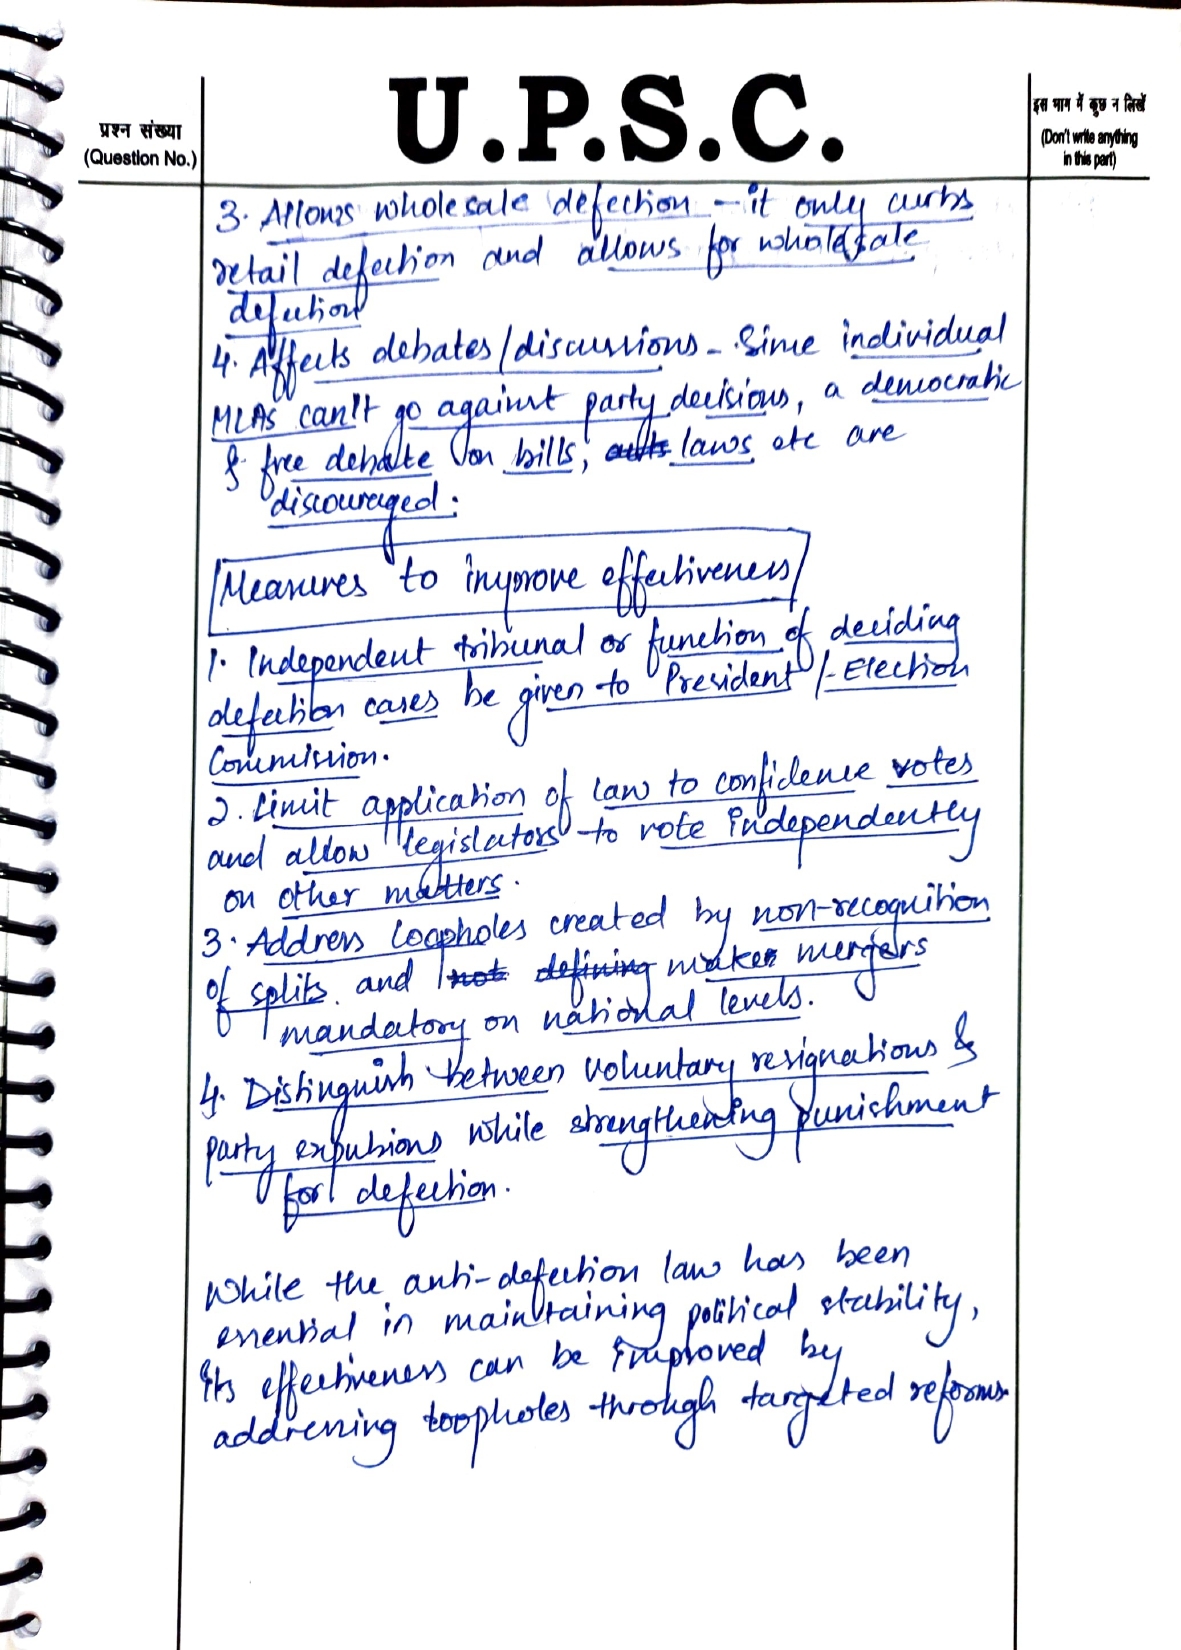 U.P.S.C.
प्रश्न संख्या
(Question No.)
इस भाग में कुछ न लिखें
(Don't write anything
in this part)
3. Allows wholesale defection - it only curbs
retail defection and allows for wholesale
defection
4. Affects debates/discussions - Since individual
MLAs can't go against party decisions, a democratic
& free debate on bills, acts laws etc are
discouraged.
Measures to improve effectiveness
1. Independent tribunal or function of deciding
defection cases be given to President / Election
Commission.
2. Limit application of law to confidence votes
and allow legislators to vote independently
on other matters.
3. Address loopholes created by non-recognition
of splits and not defining makes mergers
mandatory on national levels.
4. Distinguish between voluntary resignations &
party expulsions while strengthening punishment
for defection.
While the anti-defection law has been
essential in maintaining political stability,
its effectiveness can be improved by
addressing loopholes through targeted reforms.